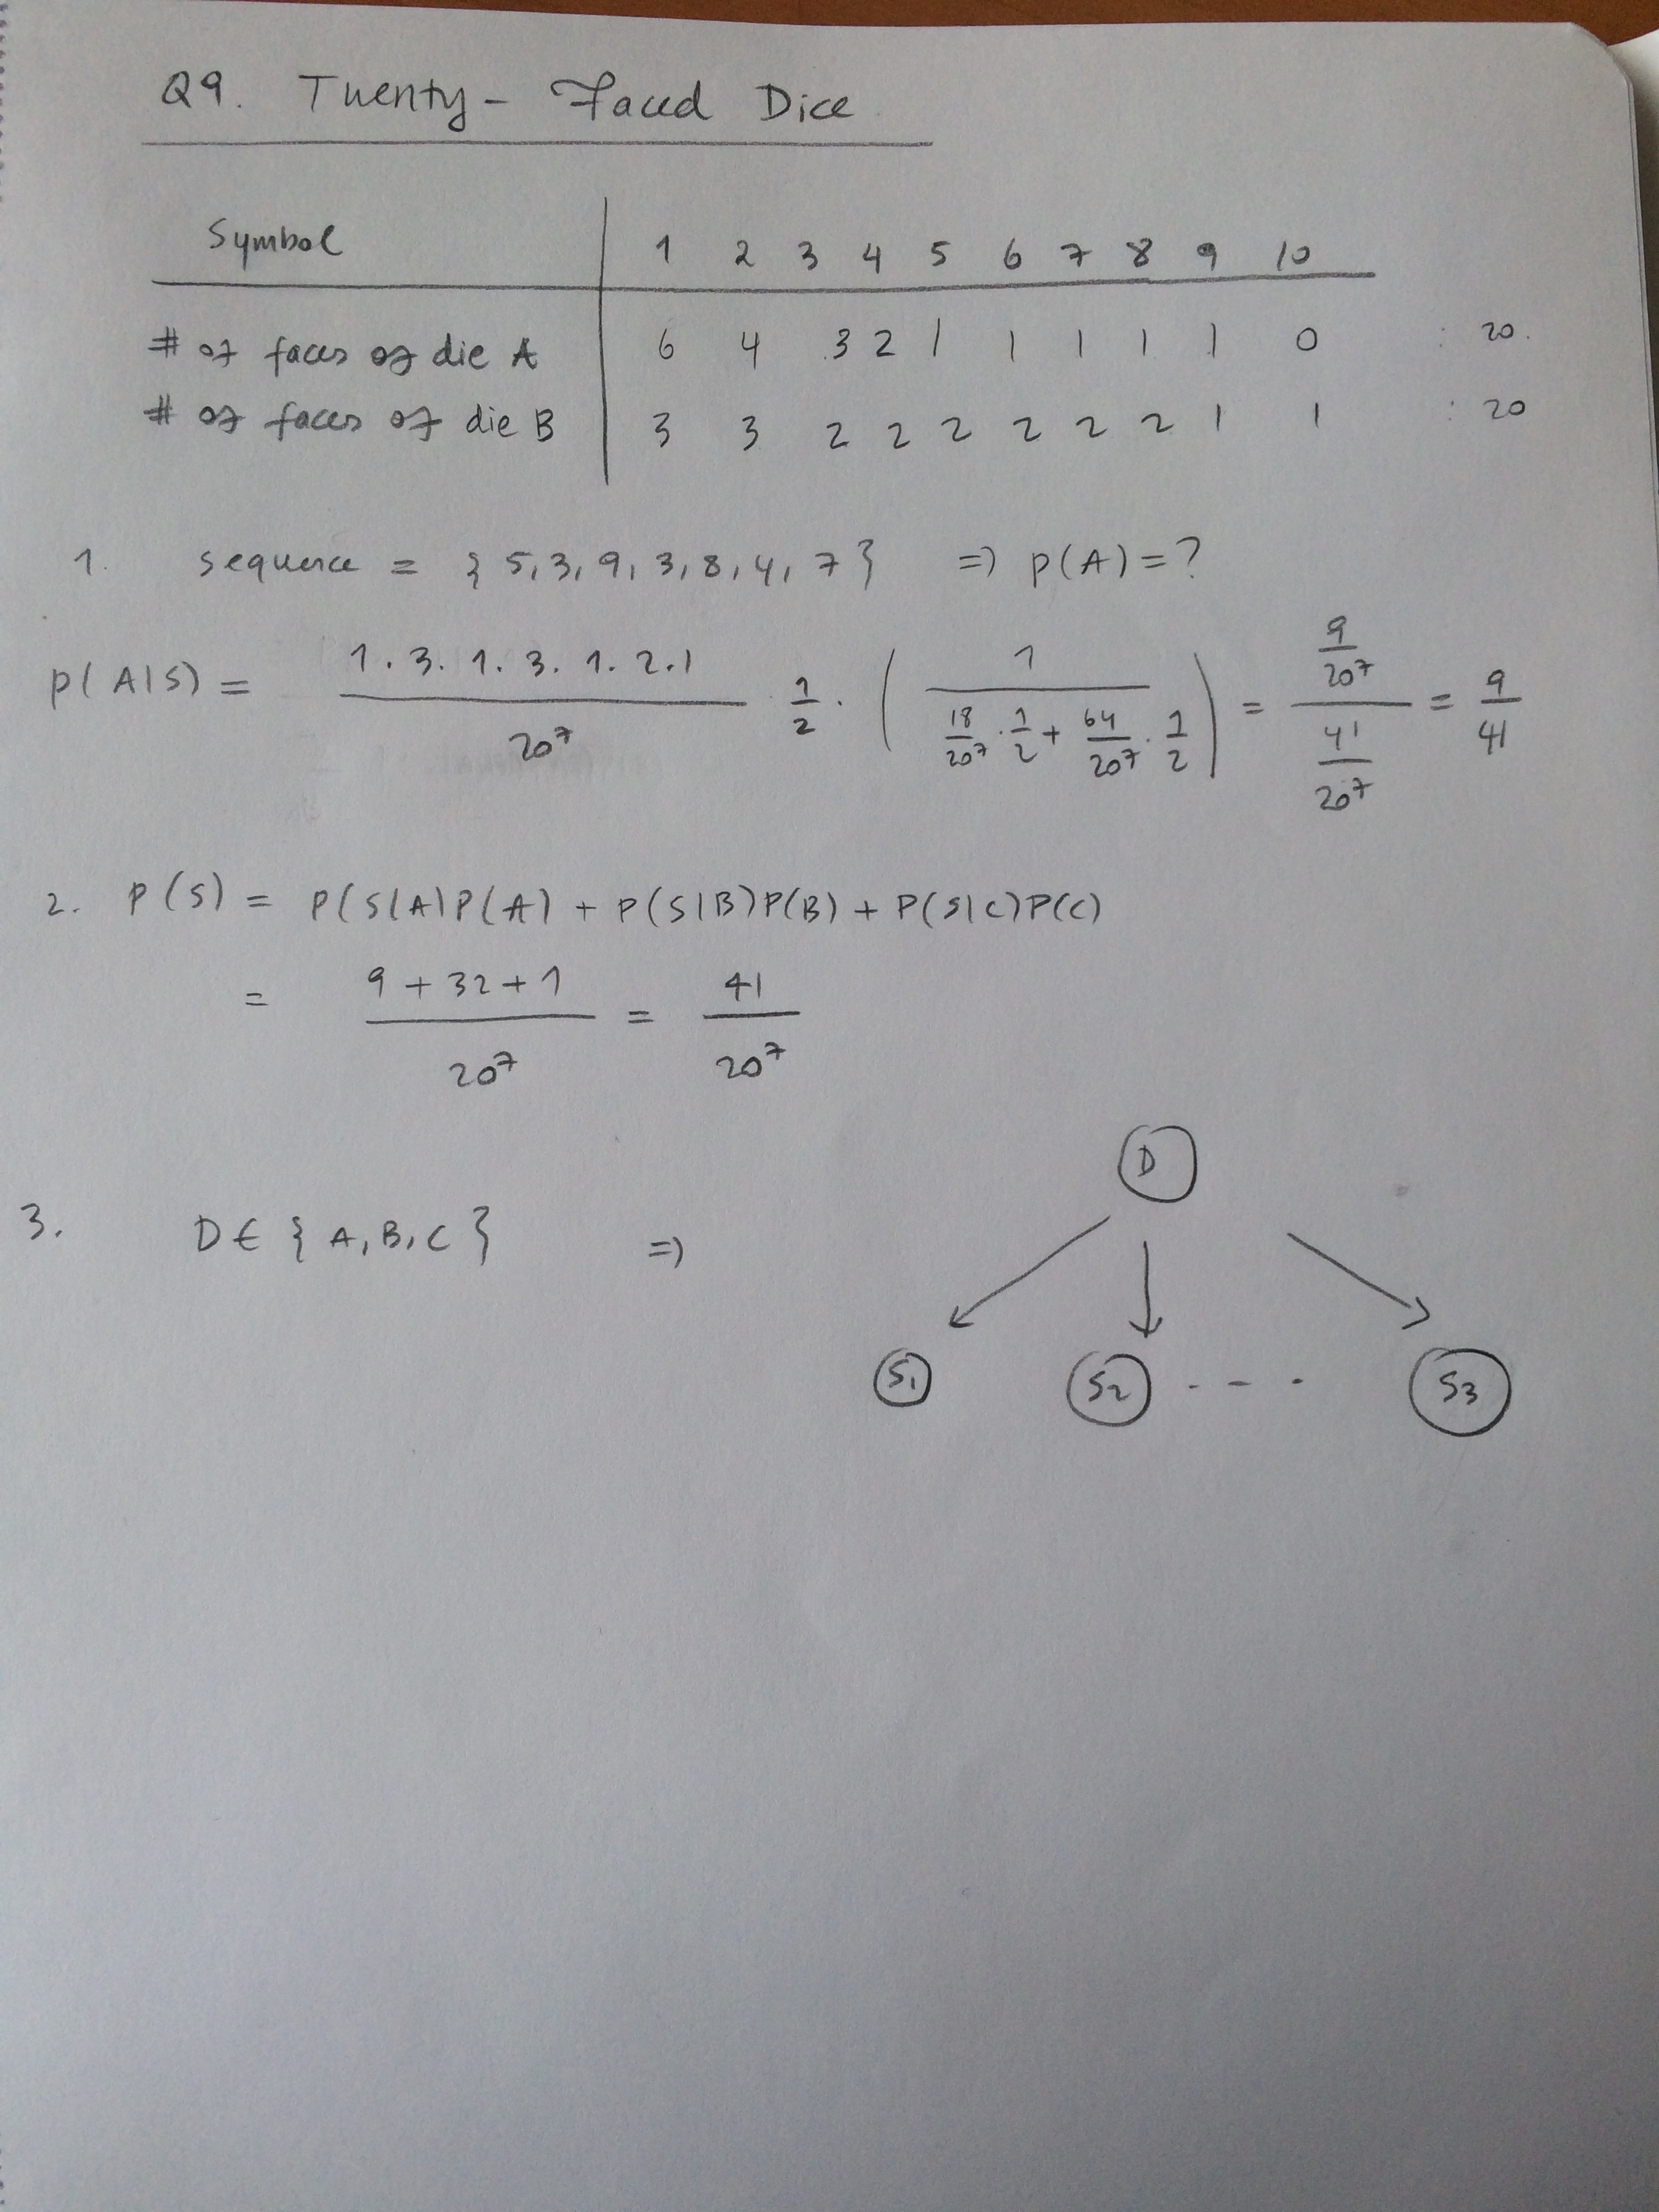 Q9. Twenty-Faced Dice
Symbol 1 2 3 4 5 6 7 8 9 10
# of faces of die A 6 4 3 2 1 1 1 1 1 0 : 20.
# of faces of die B 3 3 2 2 2 2 2 2 1 1 : 20
1. sequence = {5,3,9,3,8,4,7} => P(A)=?
P(A|S) = (1.3.1.3.1.2.1)/20^7 1/2 . (1/(18/20^7 . 1/2 + 64/20^7 . 1/2)) = (9/20^7)/(41/20^7) = 9/41
2. P(S) = P(S|A)P(A) + P(S|B)P(B) + P(S|C)P(C)
= (9+32+1)/20^7 = 41/20^7
D
3. D∈{A,B,C} =>
S1 S2 . - - . S3